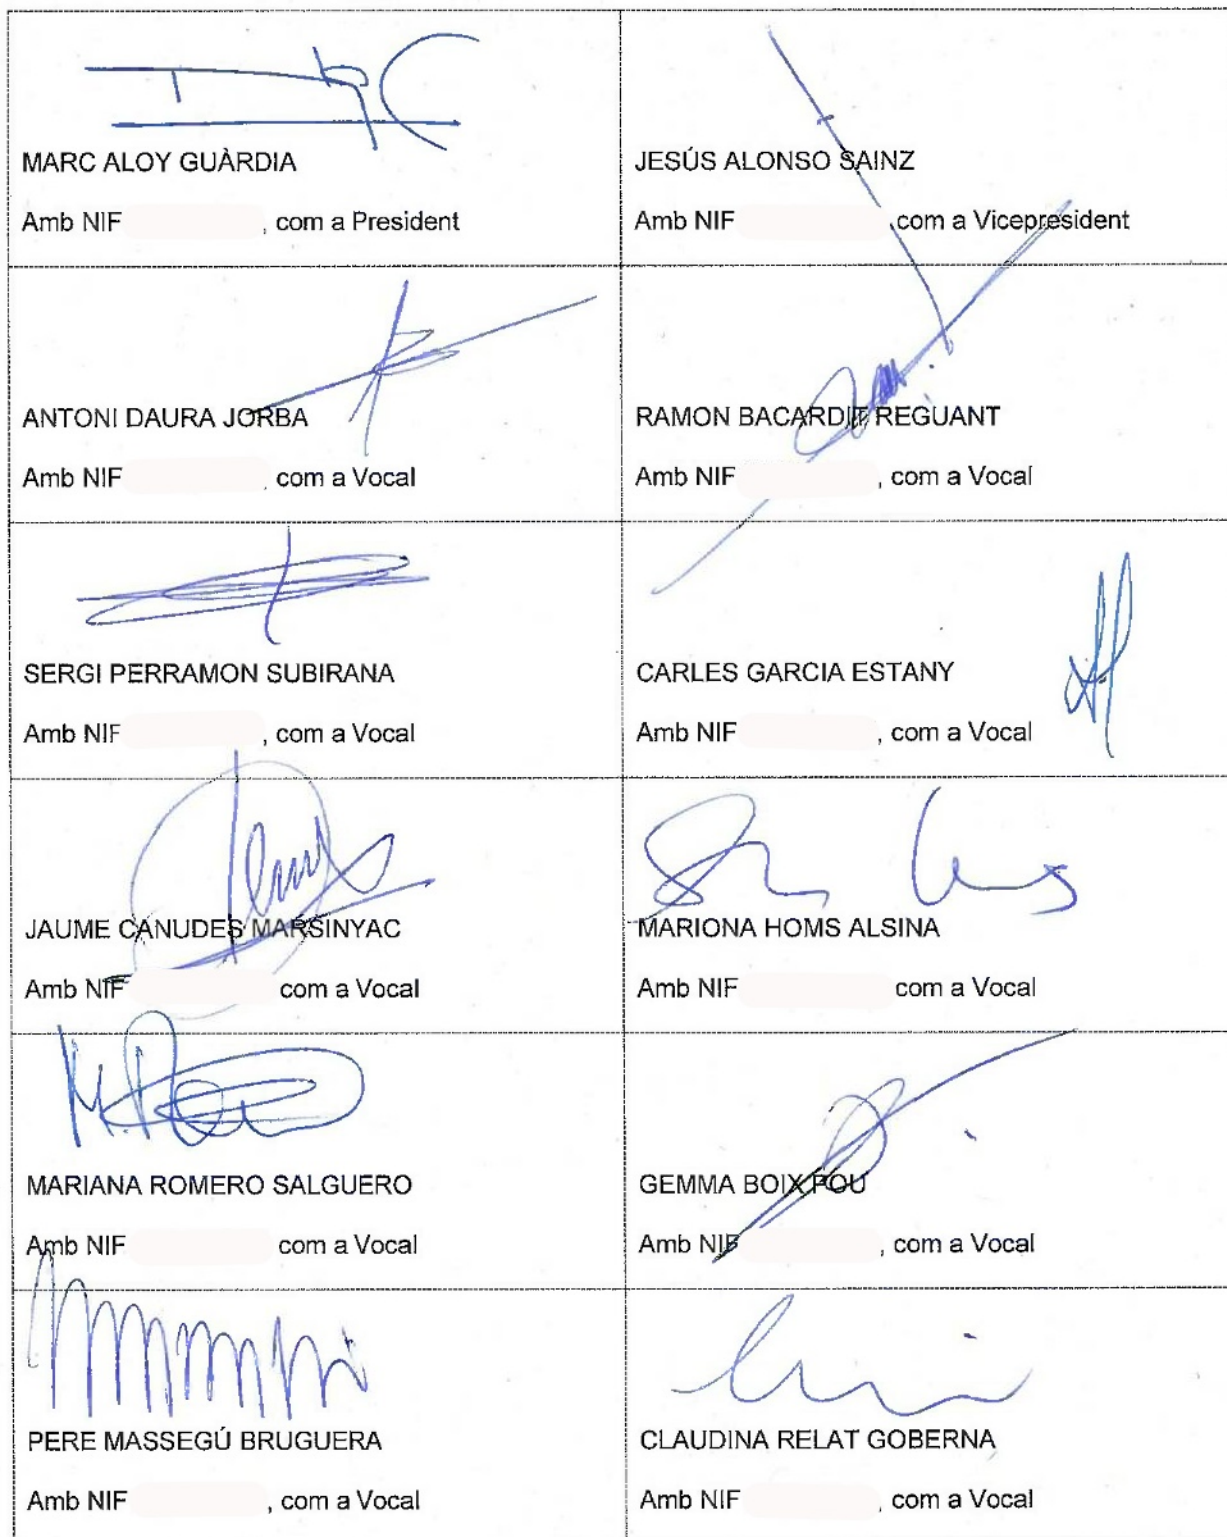 MARC ALOY GUÀRDIA
Amb NIF , com a President
JESÚS ALONSO SAINZ
Amb NIF com a Vicepresident
ANTONI DAURA JORBA
Amb NIF , com a Vocal
RAMON BACARDIT REGUANT
Amb NIF , com a Vocal
SERGI PERRAMON SUBIRANA
Amb NIF , com a Vocal
CARLES GARCIA ESTANY
Amb NIF , com a Vocal
JAUME CANUDES MARSINYAC
Amb NIF com a Vocal
MARIONA HOMS ALSINA
Amb NIF com a Vocal
MARIANA ROMERO SALGUERO
Amb NIF com a Vocal
GEMMA BOIX POU
Amb NIF , com a Vocal
PERE MASSEGÚ BRUGUERA
Amb NIF , com a Vocal
CLAUDINA RELAT GOBERNA
Amb NIF , com a Vocal